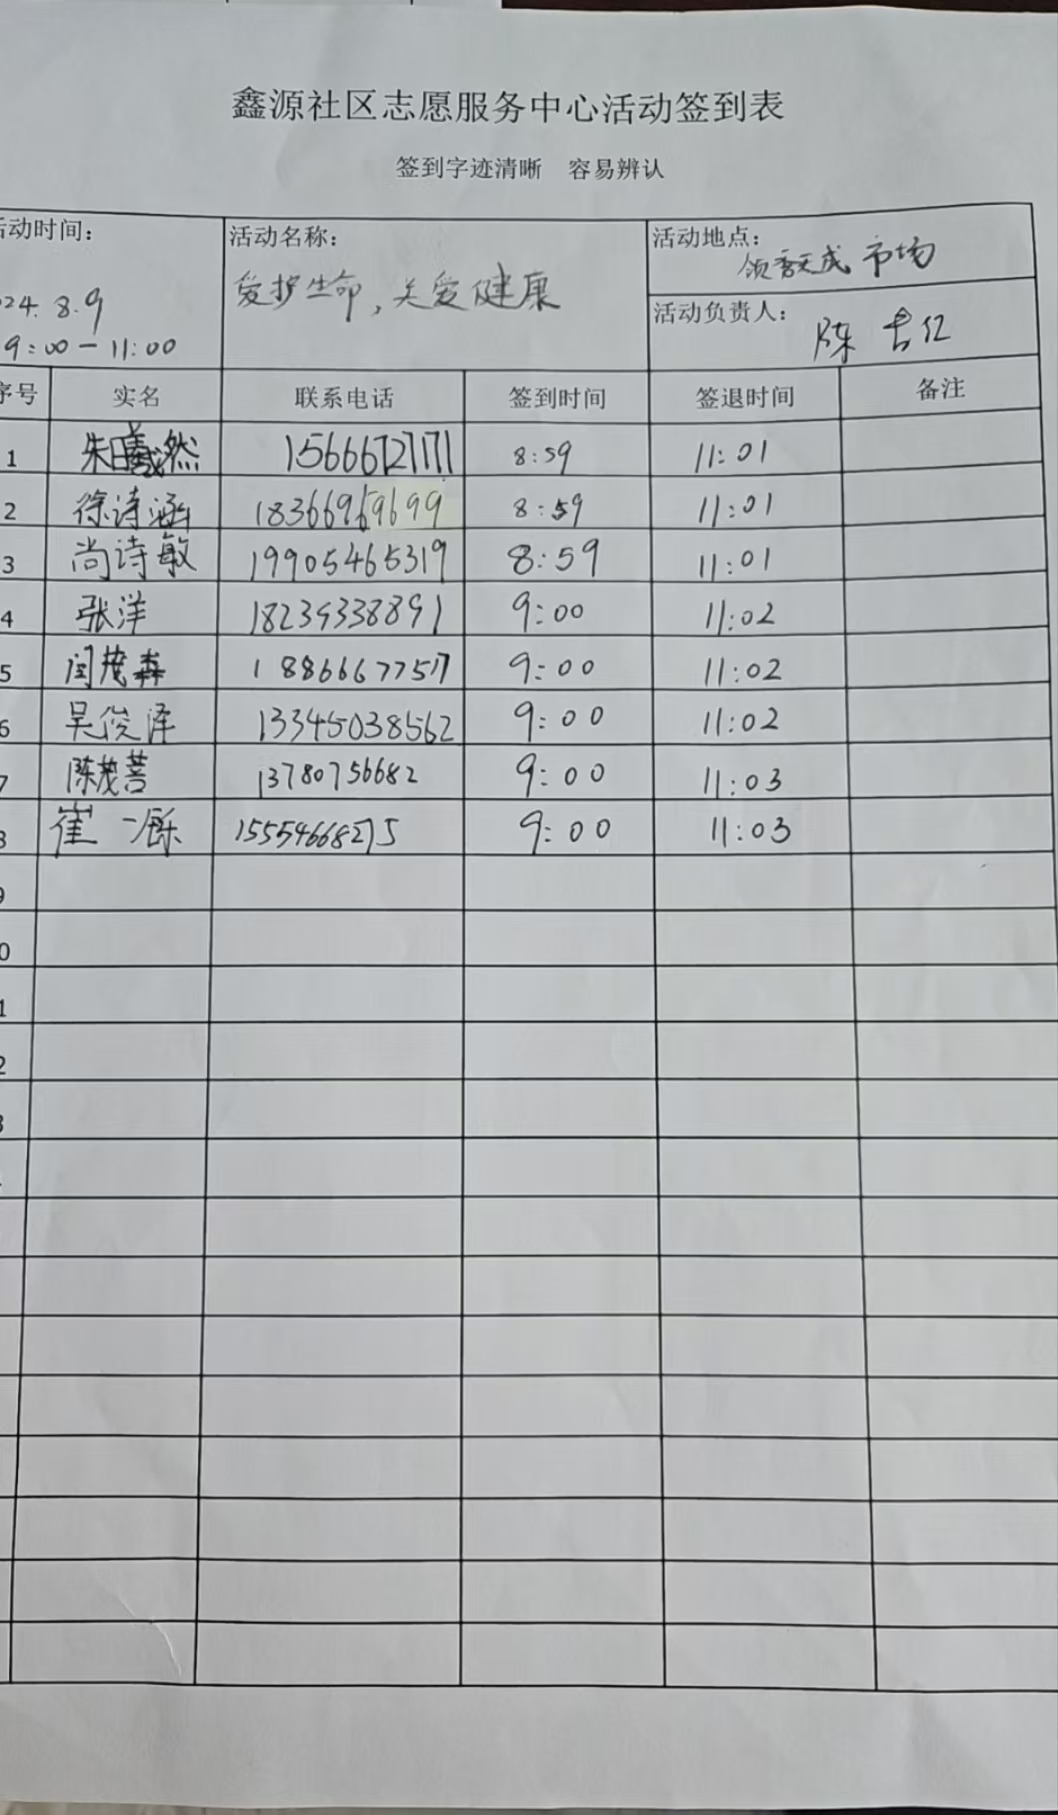 鑫源社区志愿服务中心活动签到表
签到字迹清晰 容易辨认
活动时间： 活动名称： 活动地点：
市场
爱护生命，关爱健康
24. 8.9 活动负责人： 陈
9:00-11:00
序号 实名 联系电话 签到时间 签退时间 备注
1 朱曦然 15666727171 8:59 11:01
2 徐诗涵 18366969699 8:59 11:01
3 尚诗敏 19905465319 8:59 11:01
4 张洋 18239338891 9:00 11:02
5 闫茂森 18866677517 9:00 11:02
6 吴俊泽 13345038562 9:00 11:02
7 陈茂菩 13780756682 9:00 11:03
8 崔一 15554668275 9:00 11:03
9
0
1
2
3